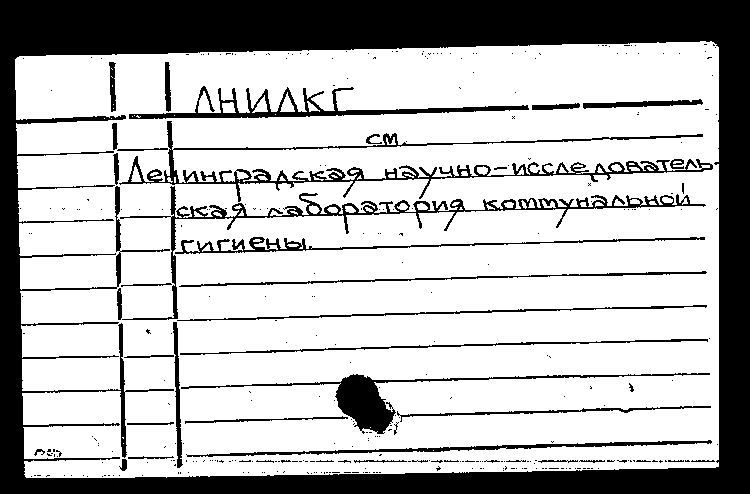 ЛНИЛКГ
см.
Ленинградская научно-исследователь-
ская лаборатория коммунальной
гигиены.